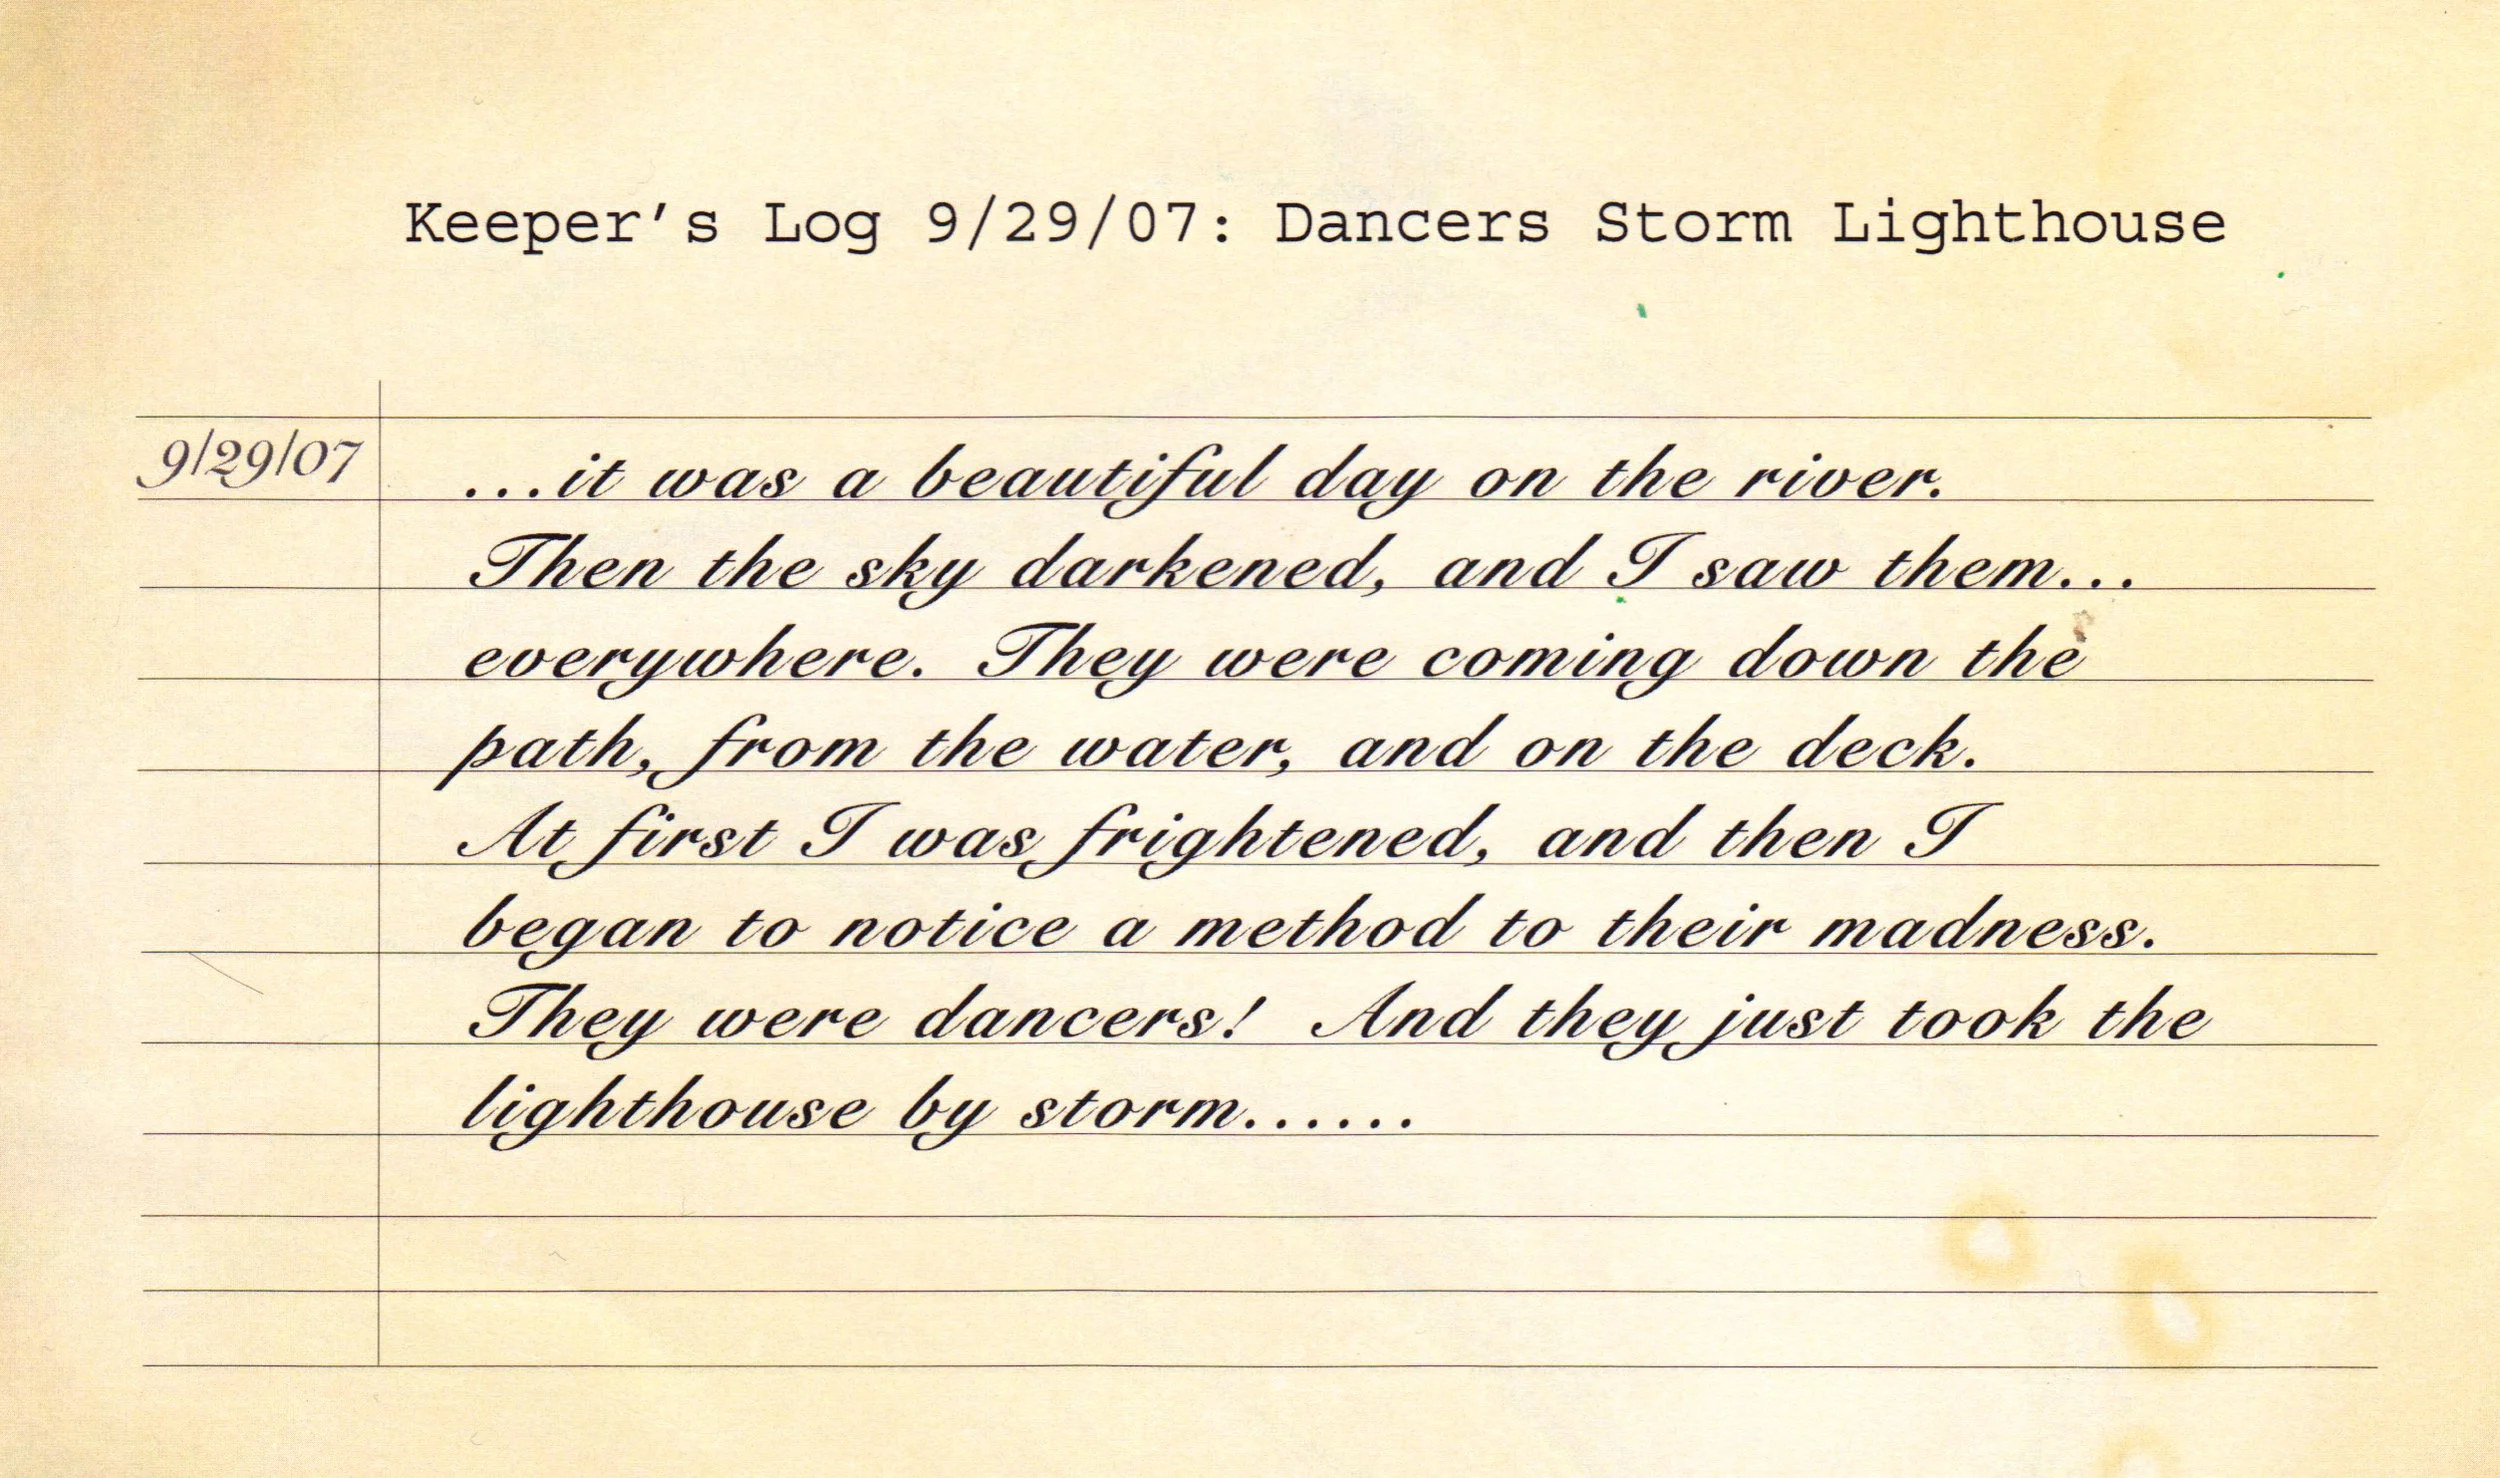 Keeper's Log 9/29/07: Dancers Storm Lighthouse
9/29/07
...it was a beautiful day on the river.
Then the sky darkened, and I saw them...
everywhere. They were coming down the
path, from the water, and on the deck.
At first I was frightened, and then I
began to notice a method to their madness.
They were dancers! And they just took the
lighthouse by storm......